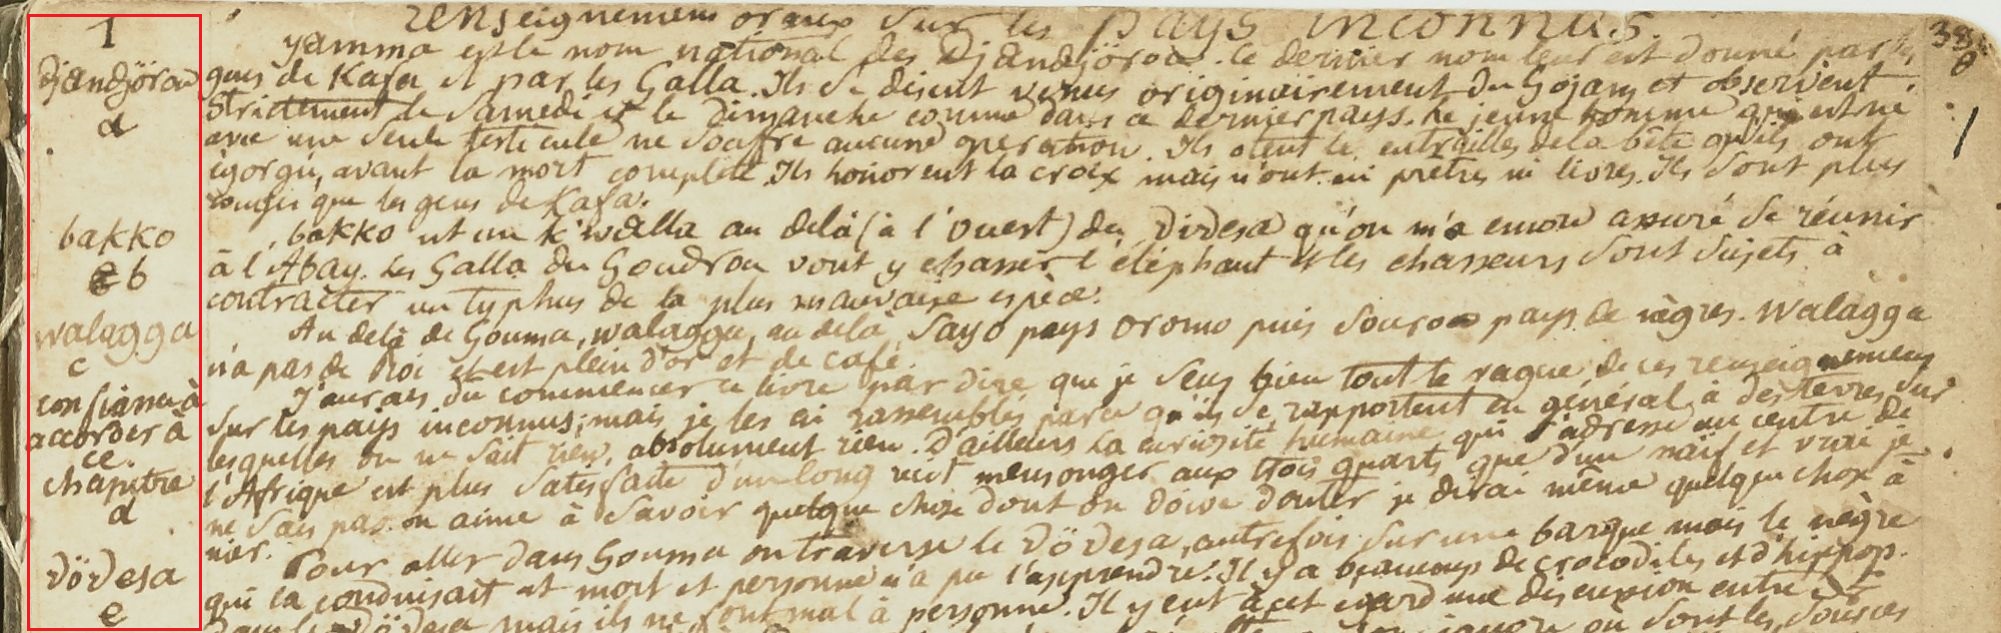 1
djandjöroa
a
bakko
b
walagga
c
confiance à
accorder à
ce
chapitre
d
dödesa
e
renseignemens oraux sur les pays inconnus.
338
yamma est le nom national des Djandjöroa. le dernier nom leur est donné par les
gens de Kafa et par les Galla. Ils se disent venus originairement du Gojam et observent
strictement le Samedi et le Dimanche comme dans ce dernier pays. Le jeune homme qui est né
avec une seule testicule ne souffre aucune operation. Ils otent les entrailles de la bête qu'ils ont
égorgée, avant la mort complète. Ils honorent la croix mais n'ont ni prêtres ni livres. Ils sont plus
rouges que les gens de Kafa.
bakko est un k'walla au delà (à l'ouest) du Didesa qu'on m'a encore assuré se réunir
à l'Abay. Les Galla du Goudrou vont y chasser l'éléphant et les chasseurs sont sujets à
contracter un typhus de la plus mauvaise espèce.
Au delà de Gouma, walagga, au delà Sayo pays oromo puis pays de nègres. Walagga
n'a pas de Roi et est plein d'or et de café.
J'aurais dû commencer ce livre par dire que je sens bien tout le vague de ces renseignemens
sur les pays inconnus; mais je les ai rassemblés parce qu'ils se rapportent en général à des terres sur
lesquelles on ne sait rien, absolument rien. D'ailleurs la curiosité humaine qui s'adresse au centre de
l'Afrique est plus satisfaite d'un long récit mensonger aux trois quarts que d'un naïf et vrai je
ne sais pas. on aime à savoir quelque chose dont on doive douter je dirai même quelque chose à
nier.
Pour aller dans Gouma on traverse le Dödesa, autrefois sur une barque mais le nègre
qui la conduisait est mort et personne n'a pu l'apprendre. Il y a beaucoup de crocodiles et d'hippop.
dans le Dödesa mais ils ne font mal à personne. Il y eut à cet egard une discussion entre
ou sont les sources